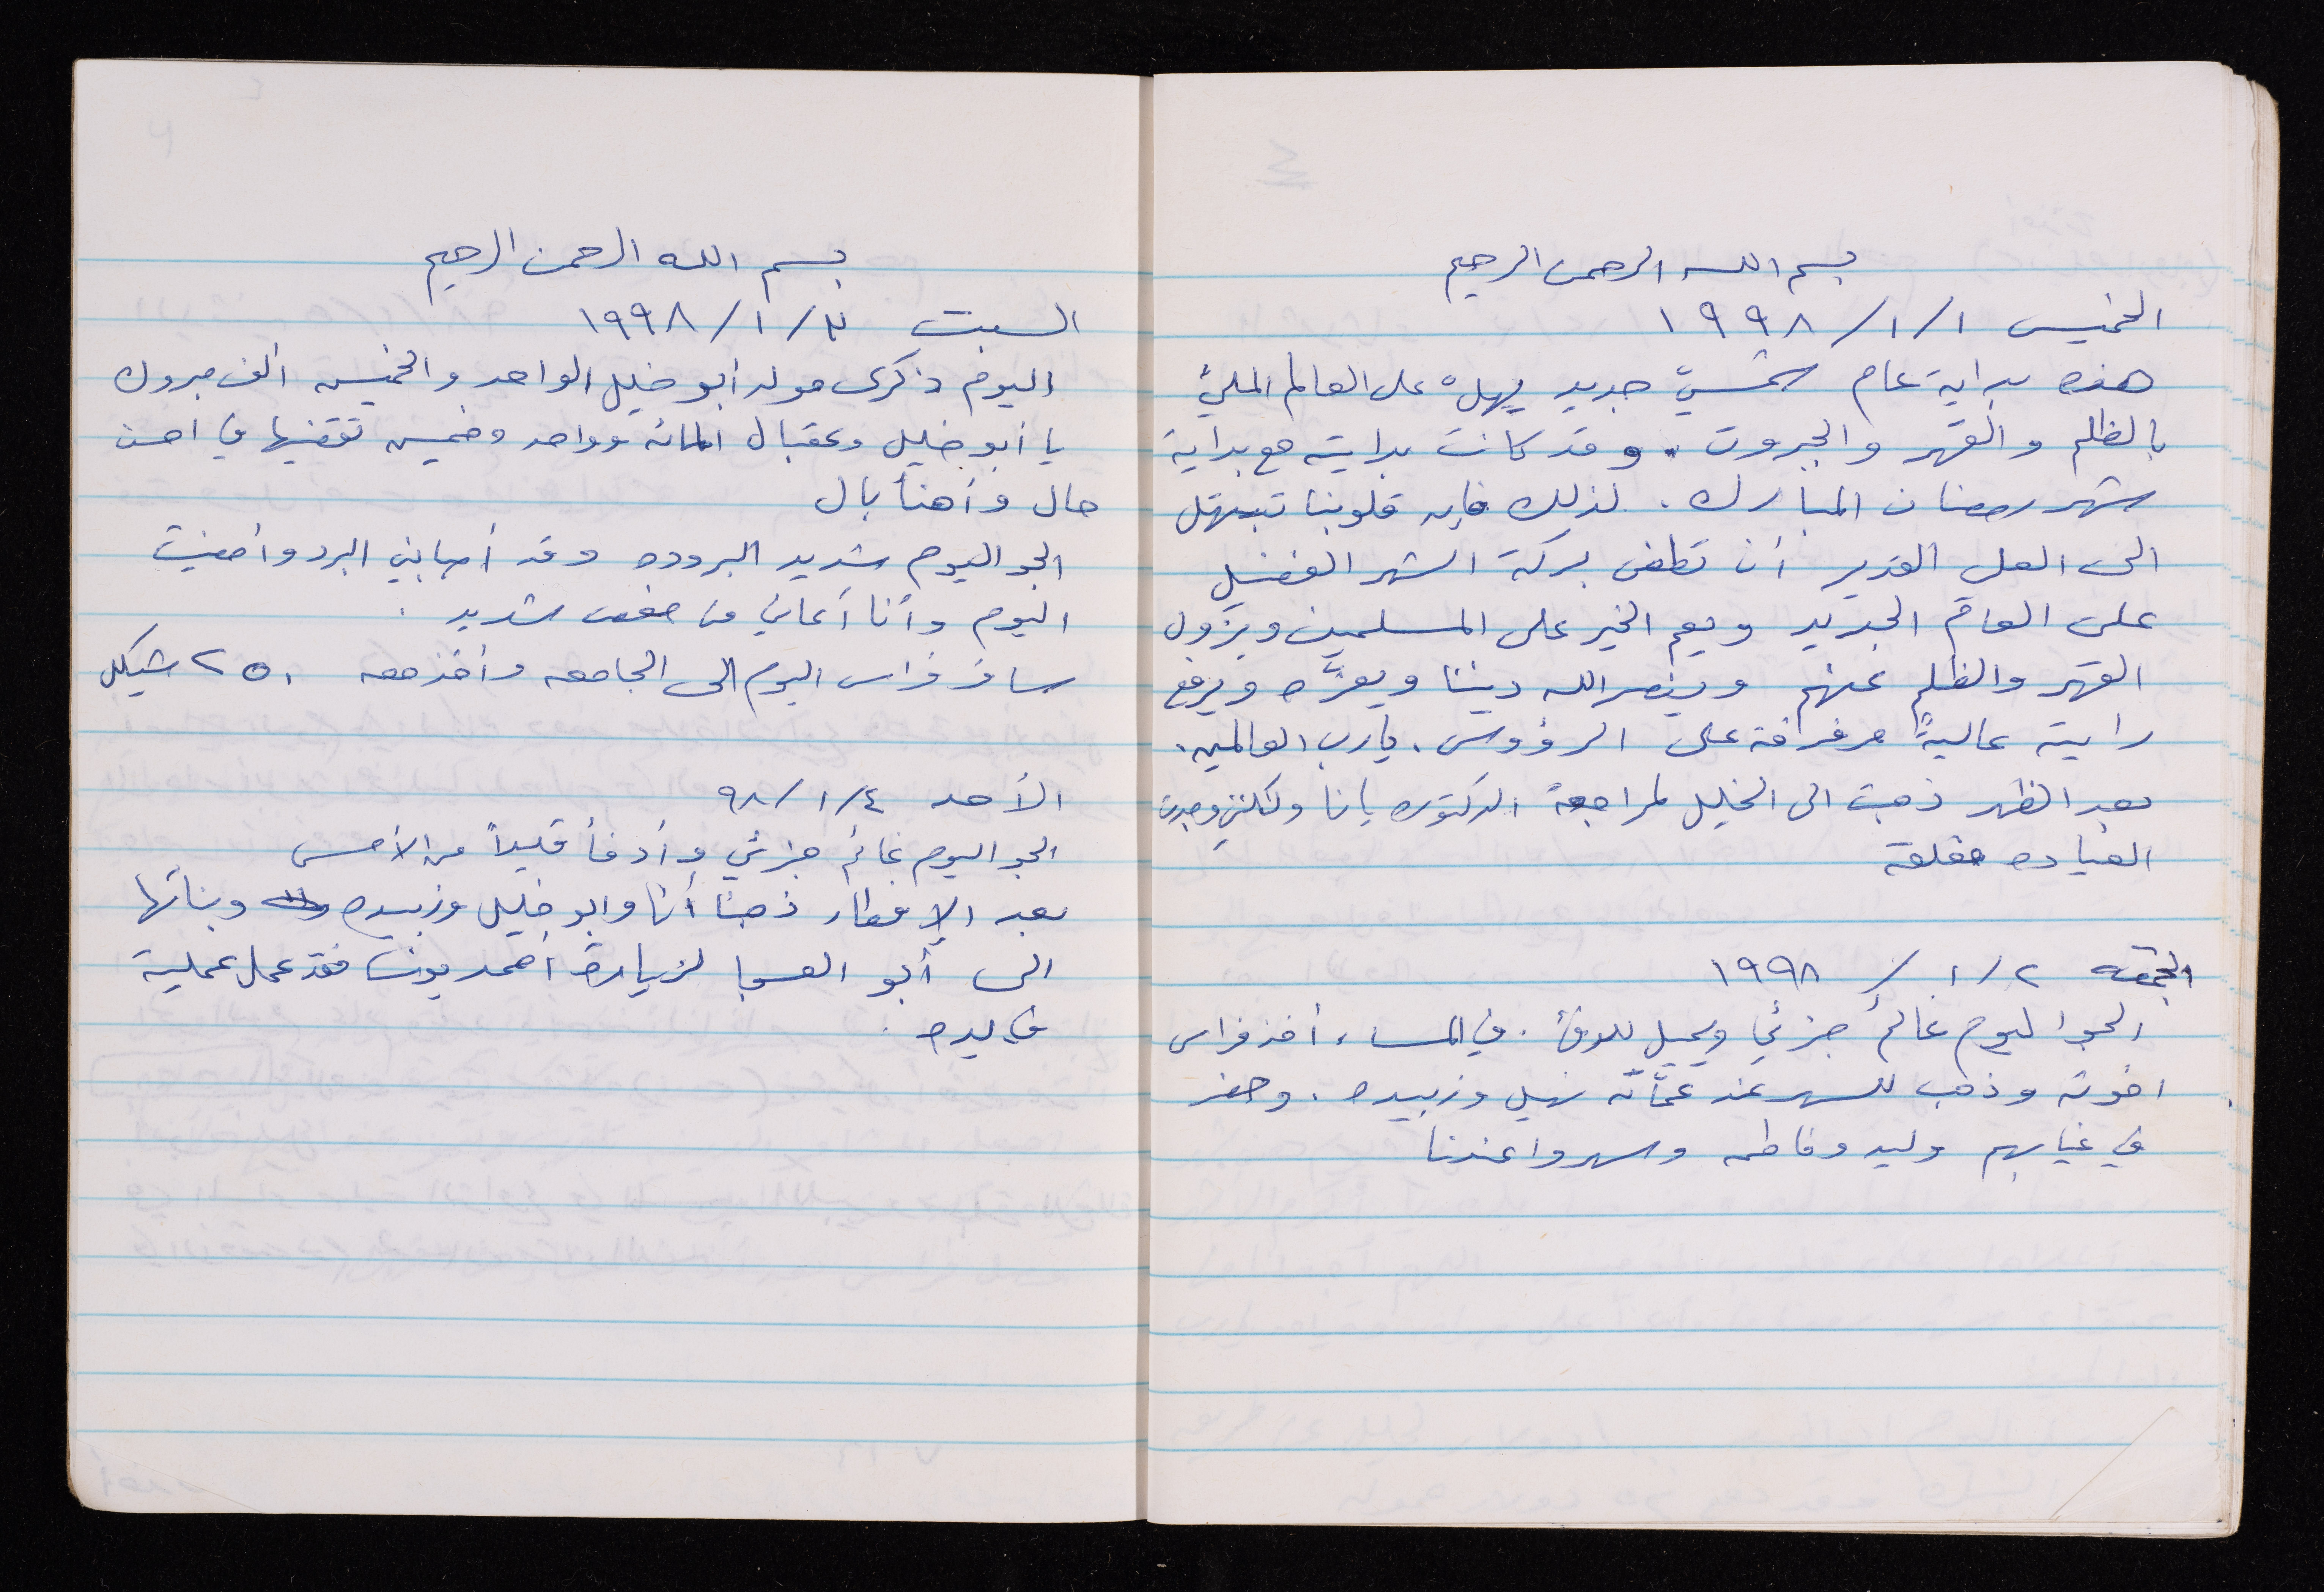 بسم الله الرحمن الرحيم
الخميس ١/١/١٩٩٨
هذه بداية عام شمسيّ جديد يهلّ على العالم المليئ
بالظلم والقهر والجبروت. وقد كانت بدايته مع بداية
شهر رمضان المبارك. لذلك فإن قلوبنا تبتهل
الى العلي القدير أن تطغى بركة الشهر الفضيل
على العام الجديد ويعم الخير على المسلمين ويزول
القهر والظلم عنهم وينصر الله ديننا ويعزّه ويرفع
رايته عاليةً مرفرفة على الرؤوس. يارب العالمين.
بعد الظهر ذهبت الى الخليل لمراجعة الدكتوره يانا ولكنني وجدت
العياده مغلقة
الجمعه ٢/١/١٩٩٨
الجو اليوم غائم جزئي ويميل للدفئ. في المساء أخذ فراس
اخوته وذهب للسهر عند عمّاته نهيل وزبيده. وحضر
في غيابهم وليد وفاطمه وسهروا عندنا
بسم الله الرحمن الرحيم
السبت ٣/١/١٩٩٨
اليوم ذكرى مولد أبو خليل الواحد والخمسين ألف مبروك
يا أبو خليل وعقبال المائه وواحد وخمسين تقضيها في احسن
حال وأهنأ بال
الجو اليوم شديد البروده وقد أصابني البرد وأمضيت
اليوم وأنا أعاني من مغص شديد.
سافر فراس اليوم الى الجامعه وأخذ معه ٢٥٠ شيكل
الأحد ٤/١/٩٨
الجو اليوم غائم جزئي وأدفأ قليلاً من الأمس
بعد الإفطار ذهبنا أنا وابو خليل وزبيده وبناتها
الى أبو العسجا لزيارة أحمد يونس فقد عمل عملية
في يده.